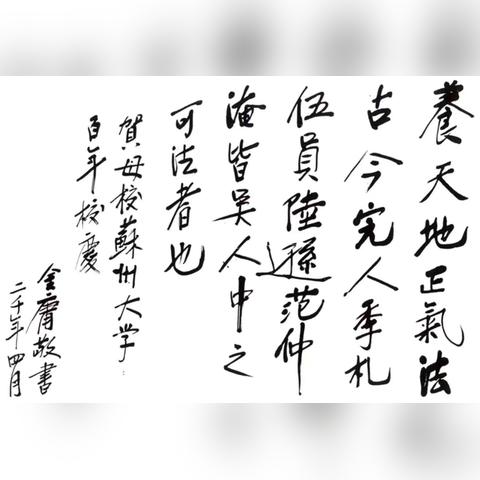 養天地正氣法
古今完人季札
伍員陸遜范仲
淹皆吳人中之
可法者也
賀母校蘇州大学
百年校慶
金庸敬書
二千年四月